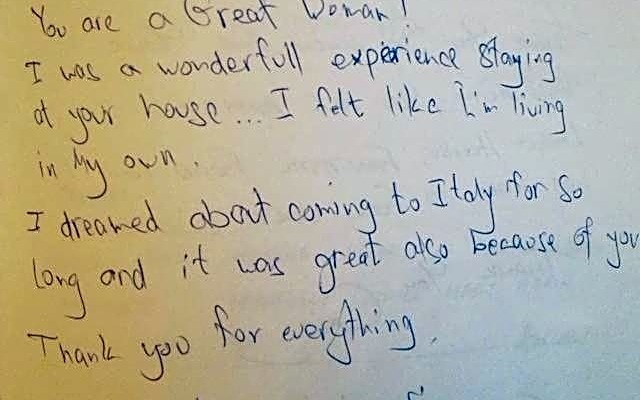 You are a Great Woman!
I was a wonderfull experience staying
at your house... I felt like I'm living
in My own.
I dreamed about coming to Italy for so
long and it was great also because of you
Thank you for everything.